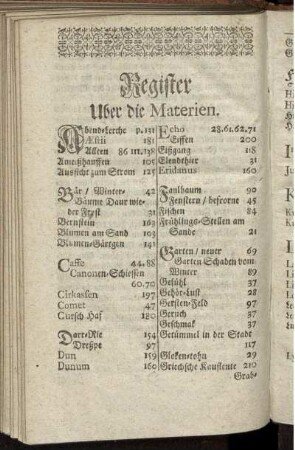 Register
Uber die Materien.
Abend-Lerche p. 131
Æstii 181
Alleen 86 111. 138
Ameißhauffen 101
Aussicht zum Strom 125
Bär / Winter- 42
Bäume Daur wie-
der Frost 31
Bernstein 163
Blumen am Sand 103
Blumen-Gärtgen 141
Caffe 44. 88
Canonen-Schiessen
60. 70
Cirkassen 197
Comet 47
Cursch Haf 180
Dart-Rie 154
Drespe 97
Dun 159
Dunum 160
Echo 28. 61. 62. 71
Eissen 200
Eißgang 118
Elendthier 31
Eridanus 160
Faulbaum 90
Fenstern / befrorne 45
Fischen 84
Frühlings-Stellen am
Sande 21
Garten / neuer 69
Garten Schaden vom
Winter 89
Gefühl 37
Gehör-Lust 28
Gersten-Feld 97
Geruch 37
Geschmak 37
Getümmel in der Stadt
117
Gloken-tohn 29
Griechsche Kaufleute 210
Grab-